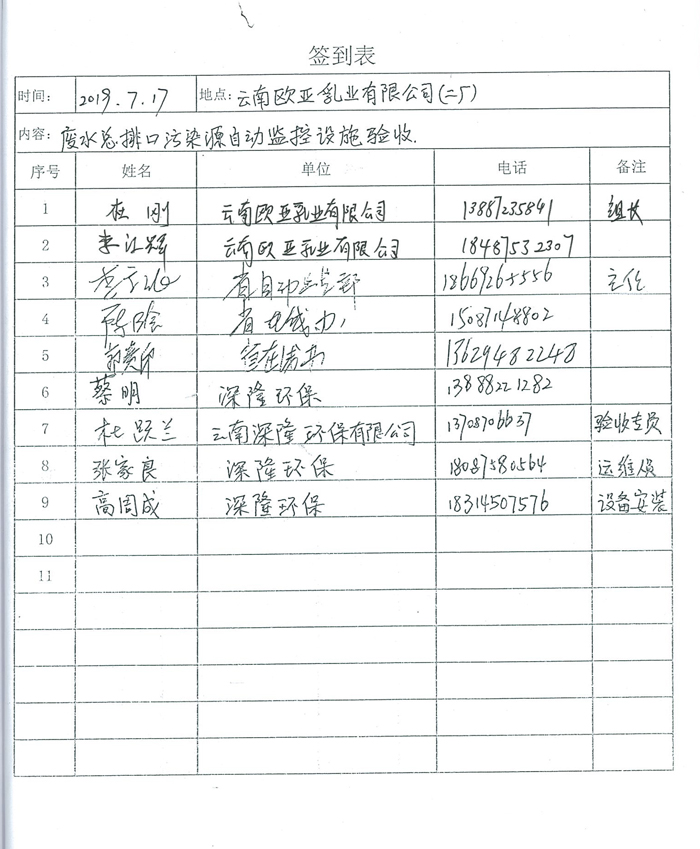 签到表
时间: 2019.7.17 地点: 云南欧亚乳业有限公司(二厂)
内容: 废水总排口污染源自动监控设施验收.
序号 姓名 单位 电话 备注
1 杜刚 云南欧亚乳业有限公司 13887235841 组长
2 李江辉 云南欧亚乳业有限公司 18487532307
3 省自动监控 18669265556 主任
4 15087148802
5 13629482248
6 蔡明 深隆环保 13888221282
7 杜跃兰 云南深隆环保有限公司 13708706637 验收专员
8 张家良 深隆环保 18087580564 运维员
9 高周成 深隆环保 18314507576 设备安装
10
11